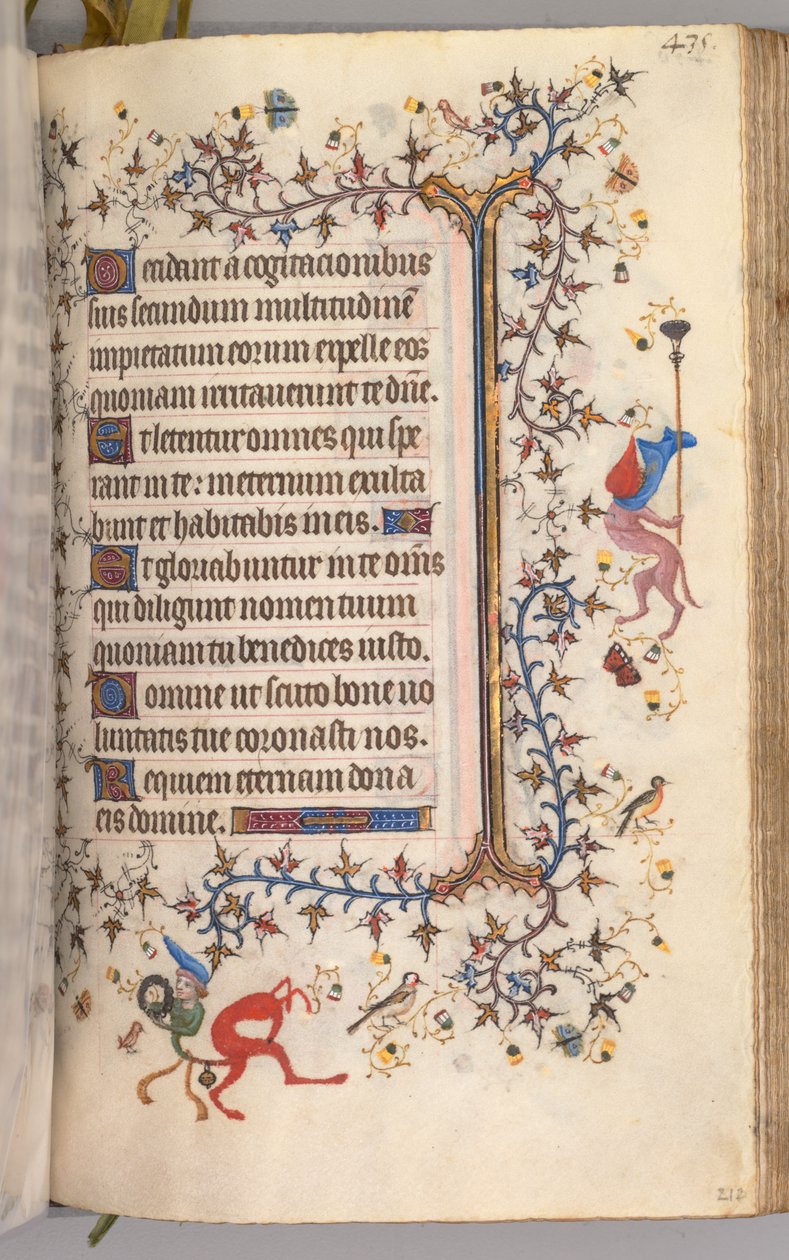 435.
Decidant a cogitacionibus
suis secundum multitudinē
impietatum eorum expelle eos
quoniam irritauerunt te dn̄e.
Et letentur omnes qui spe
rant in te: in eternum exulta
bunt et habitabis in eis.
Et gloriabuntur in te om̄s
qui diligunt nomen tuum
quoniam tu benedices iusto.
Domine ut scuto bone uo
luntatis tue coronasti nos.
Requiem eternam dona
eis domine.
212